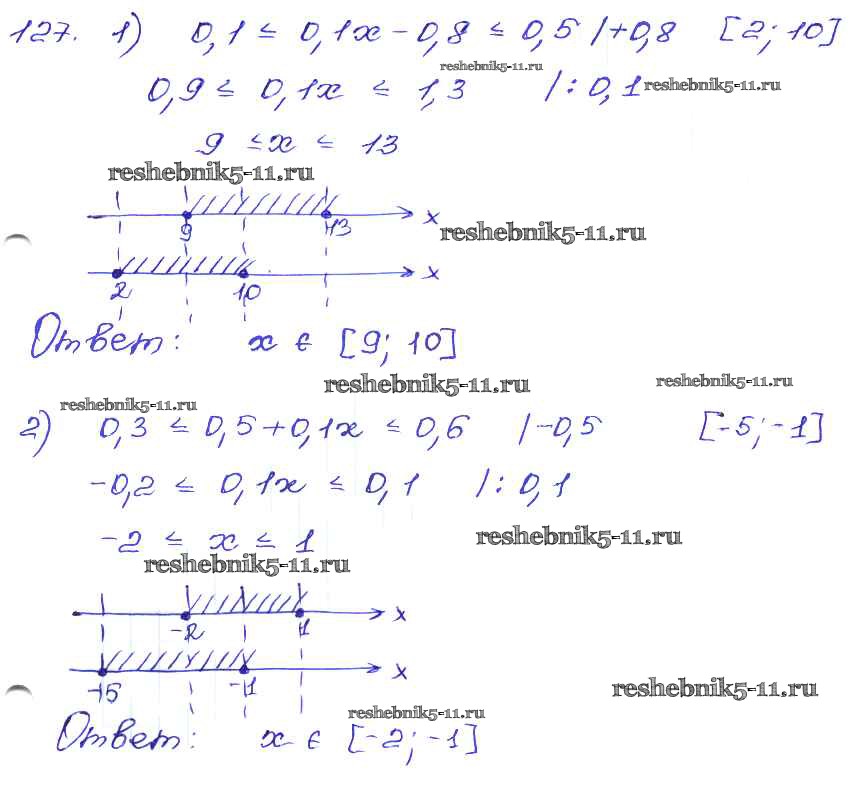 127. 1) 0,1 ≤ 0,1x - 0,8 ≤ 0,5 /+0,8 [2; 10]
reshebnik5-11.ru
0,9 ≤ 0,1x ≤ 1,3 /: 0,1 reshebnik5-11.ru
9 ≤ x ≤ 13
reshebnik5-11.ru
x
9 13
reshebnik5-11.ru
x
2 10
Ответ: x ∈ [9; 10]
reshebnik5-11.ru reshebnik5-11.ru
reshebnik5-11.ru
2) 0,3 ≤ 0,5+0,1x ≤ 0,6 /-0,5 [-5; -1]
-0,2 ≤ 0,1x ≤ 0,1 /: 0,1
-2 ≤ x ≤ 1
reshebnik5-11.ru
reshebnik5-11.ru
x
-2 1
x
-5 -1
reshebnik5-11.ru
reshebnik5-11.ru
Ответ: x ∈ [-2; -1]